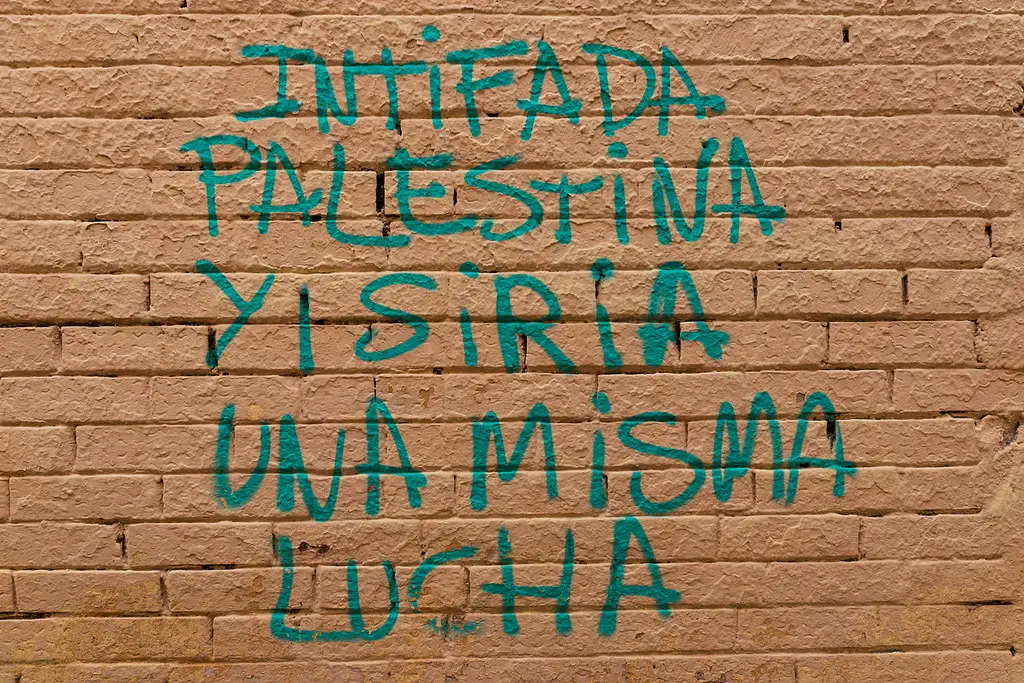 INTIFADA
PALESTINA
Y I SIRIA
UNA MISMA
LUCHA